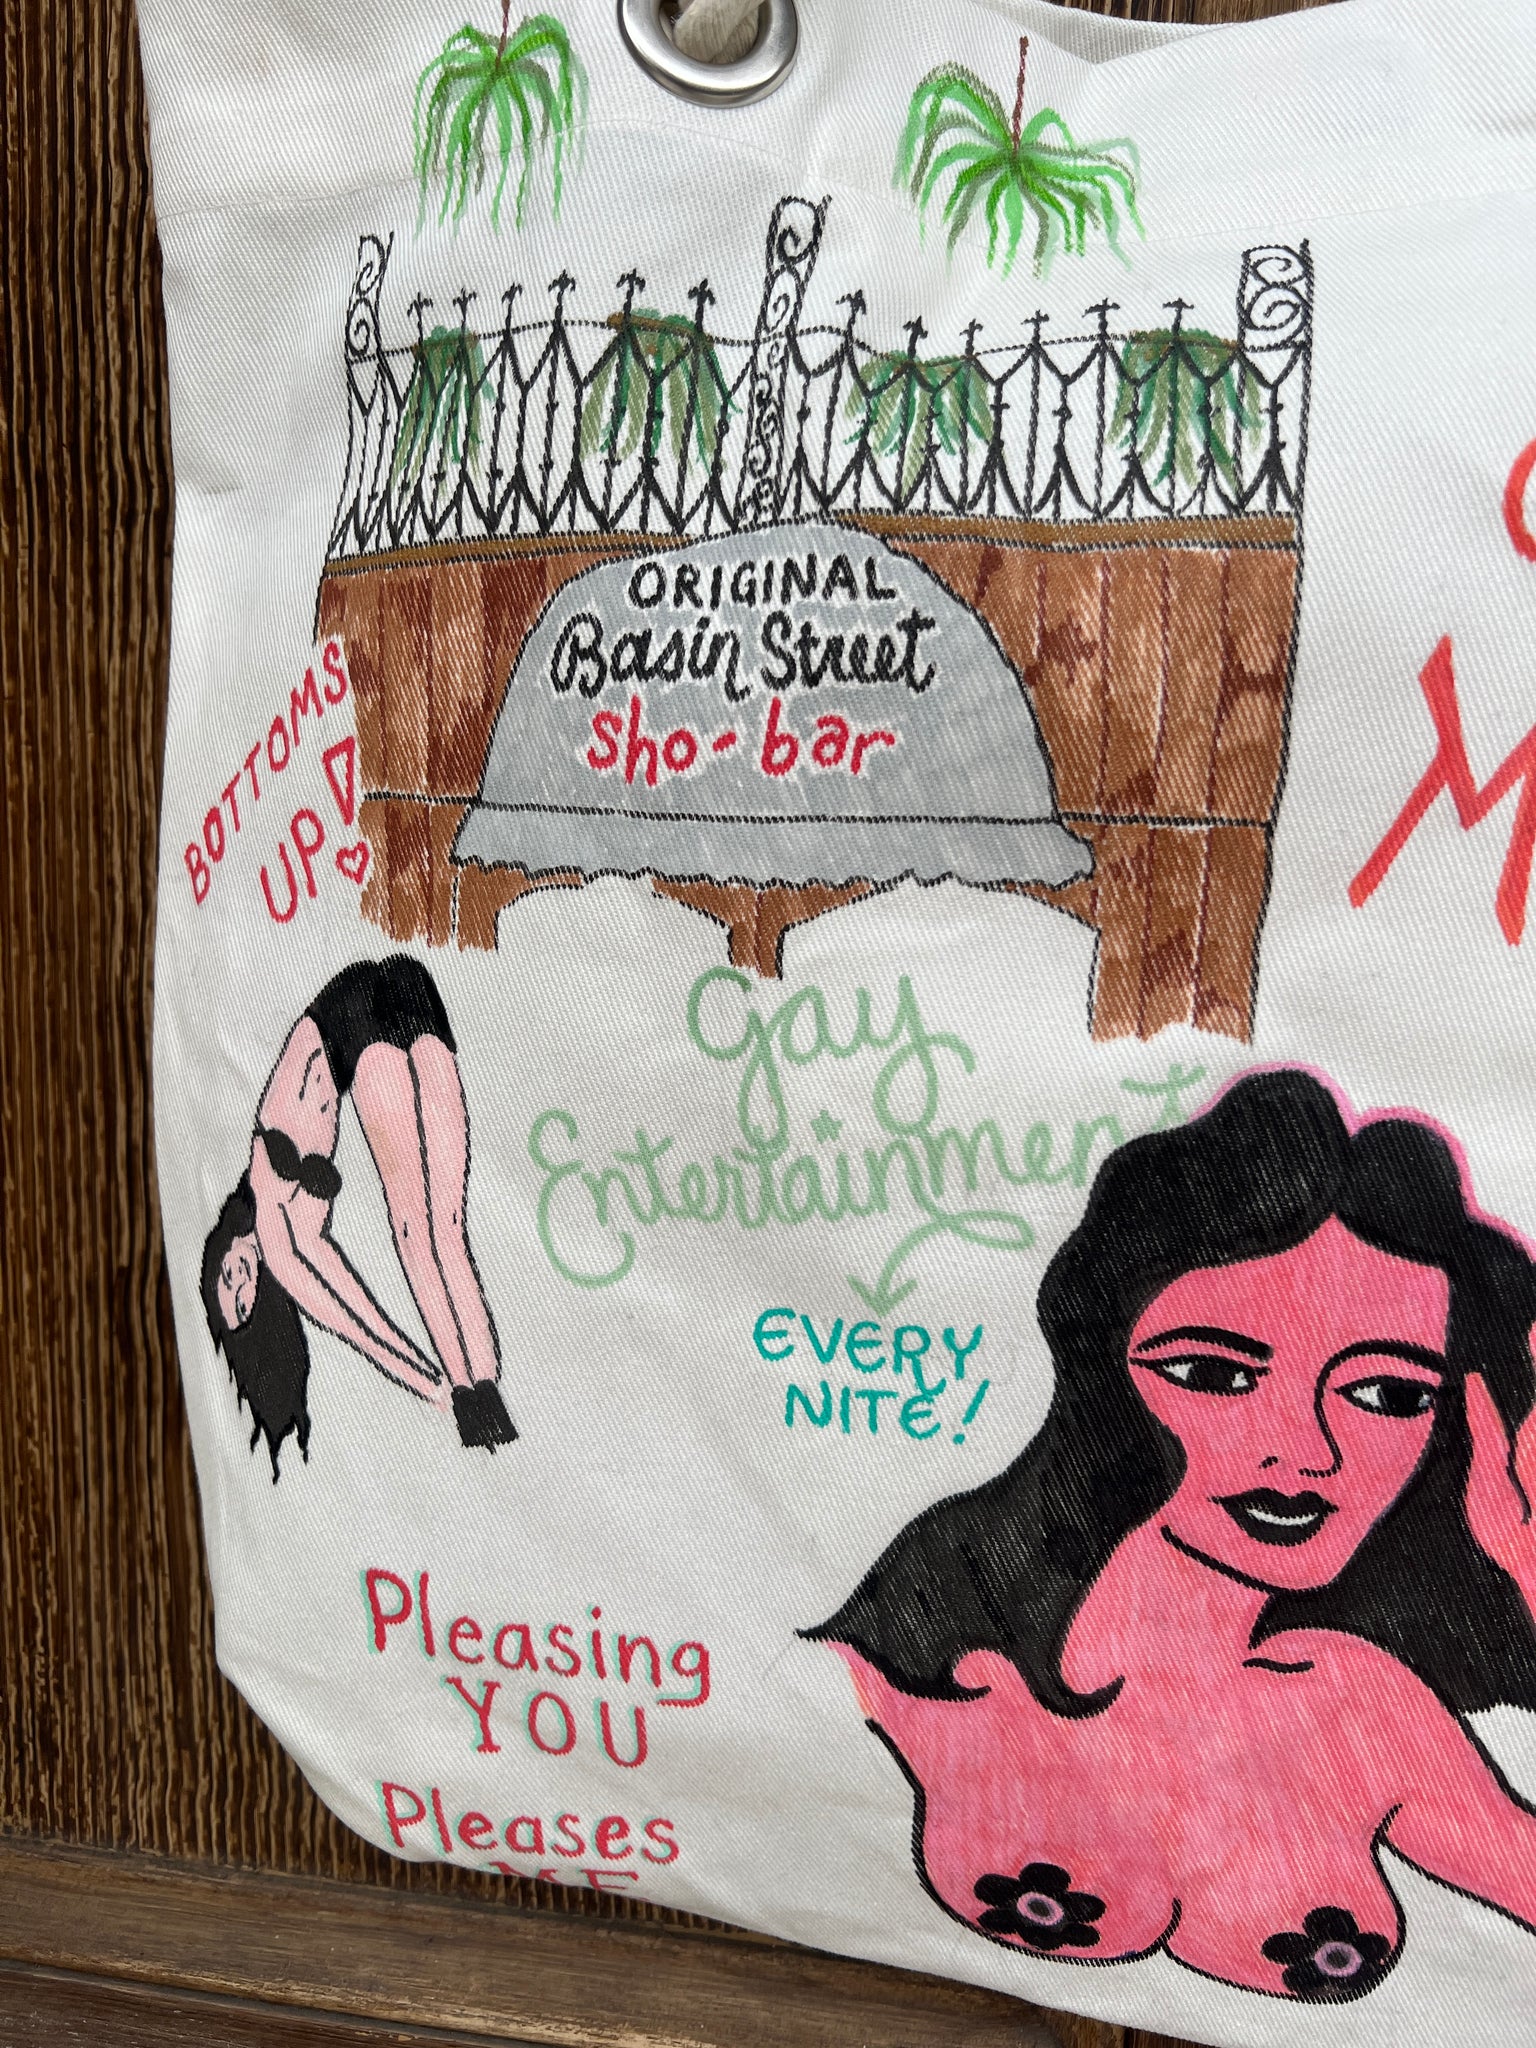 ORIGINAL
Basin Street
sho-bar
BOTTOMS
UP!
gay
Entertainment
EVERY
NITE!
Pleasing
YOU
Pleases
ME